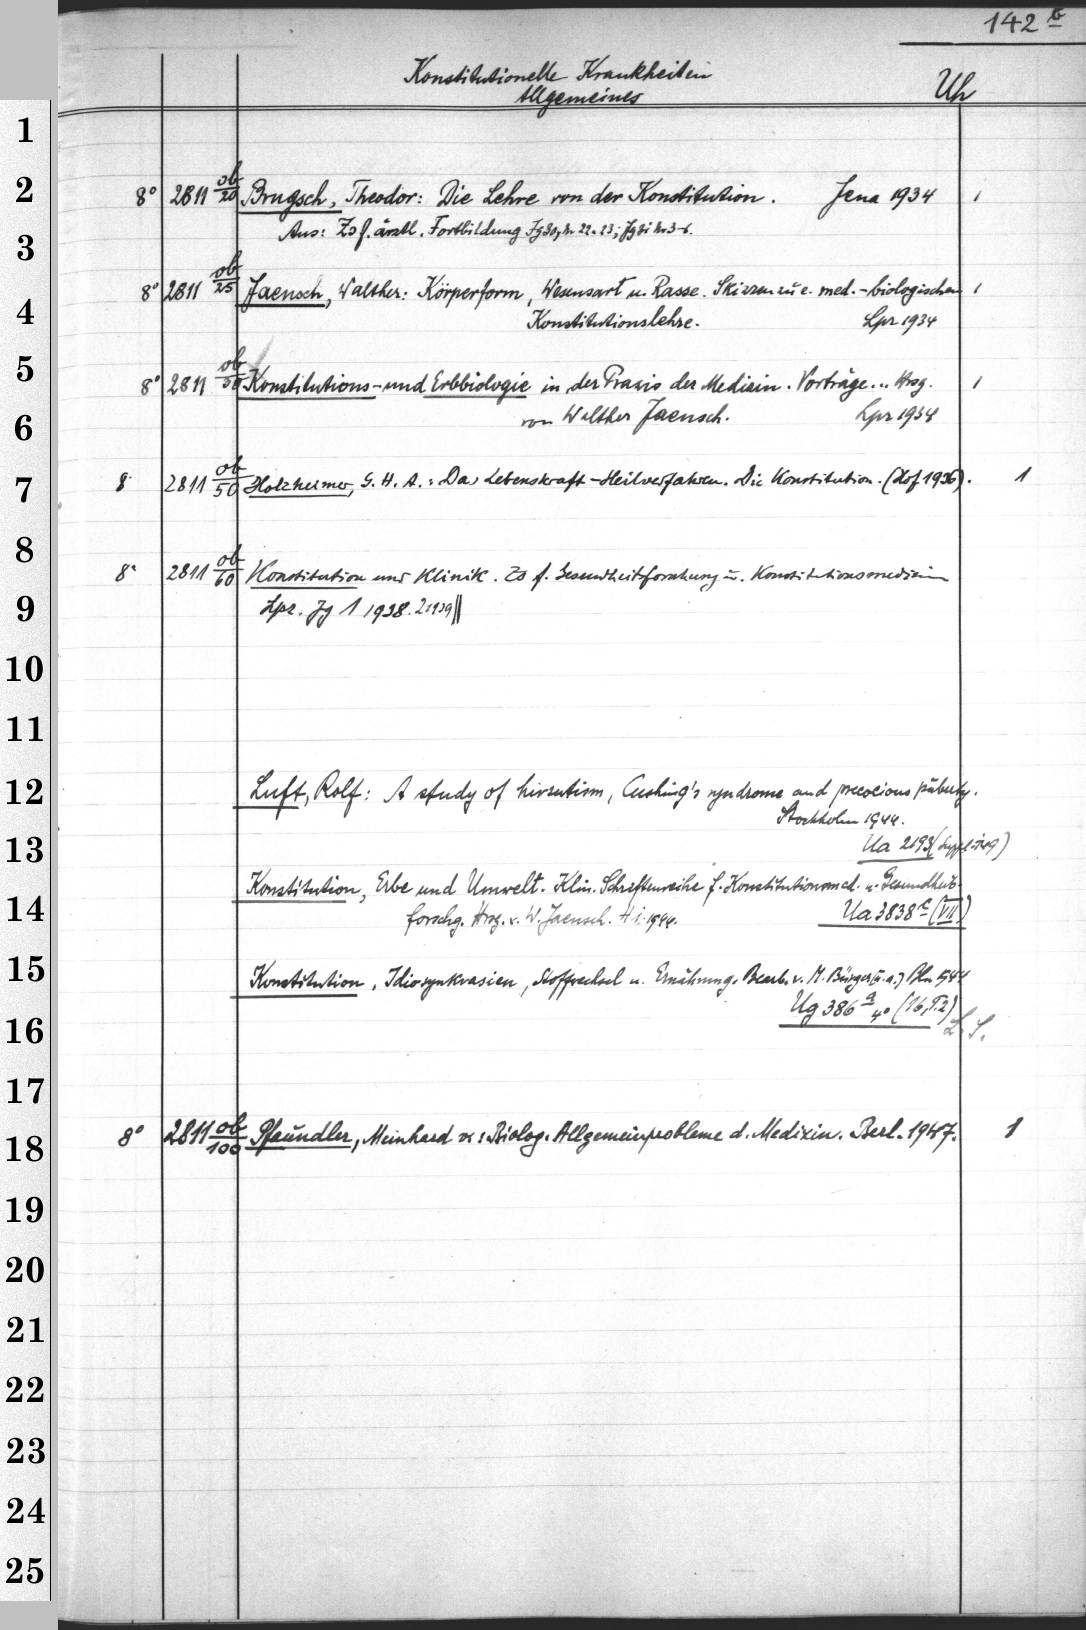 142 b
Konstitutionelle Krankheiten
Allgemeines
Uh
1
2
3
4
5
6
7
8
9
10
11
12
13
14
15
16
17
18
19
20
21
22
23
24
25
8° 2811 ob/20 Brugsch, Theodor: Die Lehre von der Konstitution. Jena 1934 1
Aus: Zs f. ärztl. Fortbildung Jg 30, Nr 22 u. 23; Jg 31 Nr 3-6.
8° 2811 ob/25 Jaensch, Walther: Körperform, Wesensart u. Rasse. Skizzen zu e. med.-biologischen 1
Konstitutionslehre. Lpz 1934
8° 2811 ob/30 Konstitutions- und Erbbiologie in der Praxis der Medizin. Vorträge... Hrsg. 1
von Walther Jaensch. Lpz 1934
8° 2811 ob/50 Holzheimer, G. H. A.: Das Lebenskraft-Heilverfahren. Die Konstitution. (Hof 1936). 1
8° 2811 ob/60 Konstitution und Klinik. Zs f. Gesundheitsforschung u. Konstitutionsmedizin
Lpz. Jg 1 1938. 2 1939 ||
Luft, Rolf: A study of hirsutism, Cushing's syndrome and precocious puberty.
Stockholm 1944.
Ua 2193 (Suppl. 149)
Konstitution, Erbe und Umwelt. Klin. Schriftenreihe f. Konstitutionsmed. u. Gesundheits-
forschg. Hrsg. v. W. Jaensch. H 1. 1944.
Ua 3838 c (VII)
Konstitution, Idiosynkrasien, Stoffwechsel u. Ernährung. Bearb. v. M. Bürger (u. a.) Bln 1944
Ug 386 a 4° (16, T. 2)
L. S.
8° 2811 ob/100 Pfaundler, Meinhard v.: Biolog. Allgemeinprobleme d. Medizin. Berl. 1947. 1